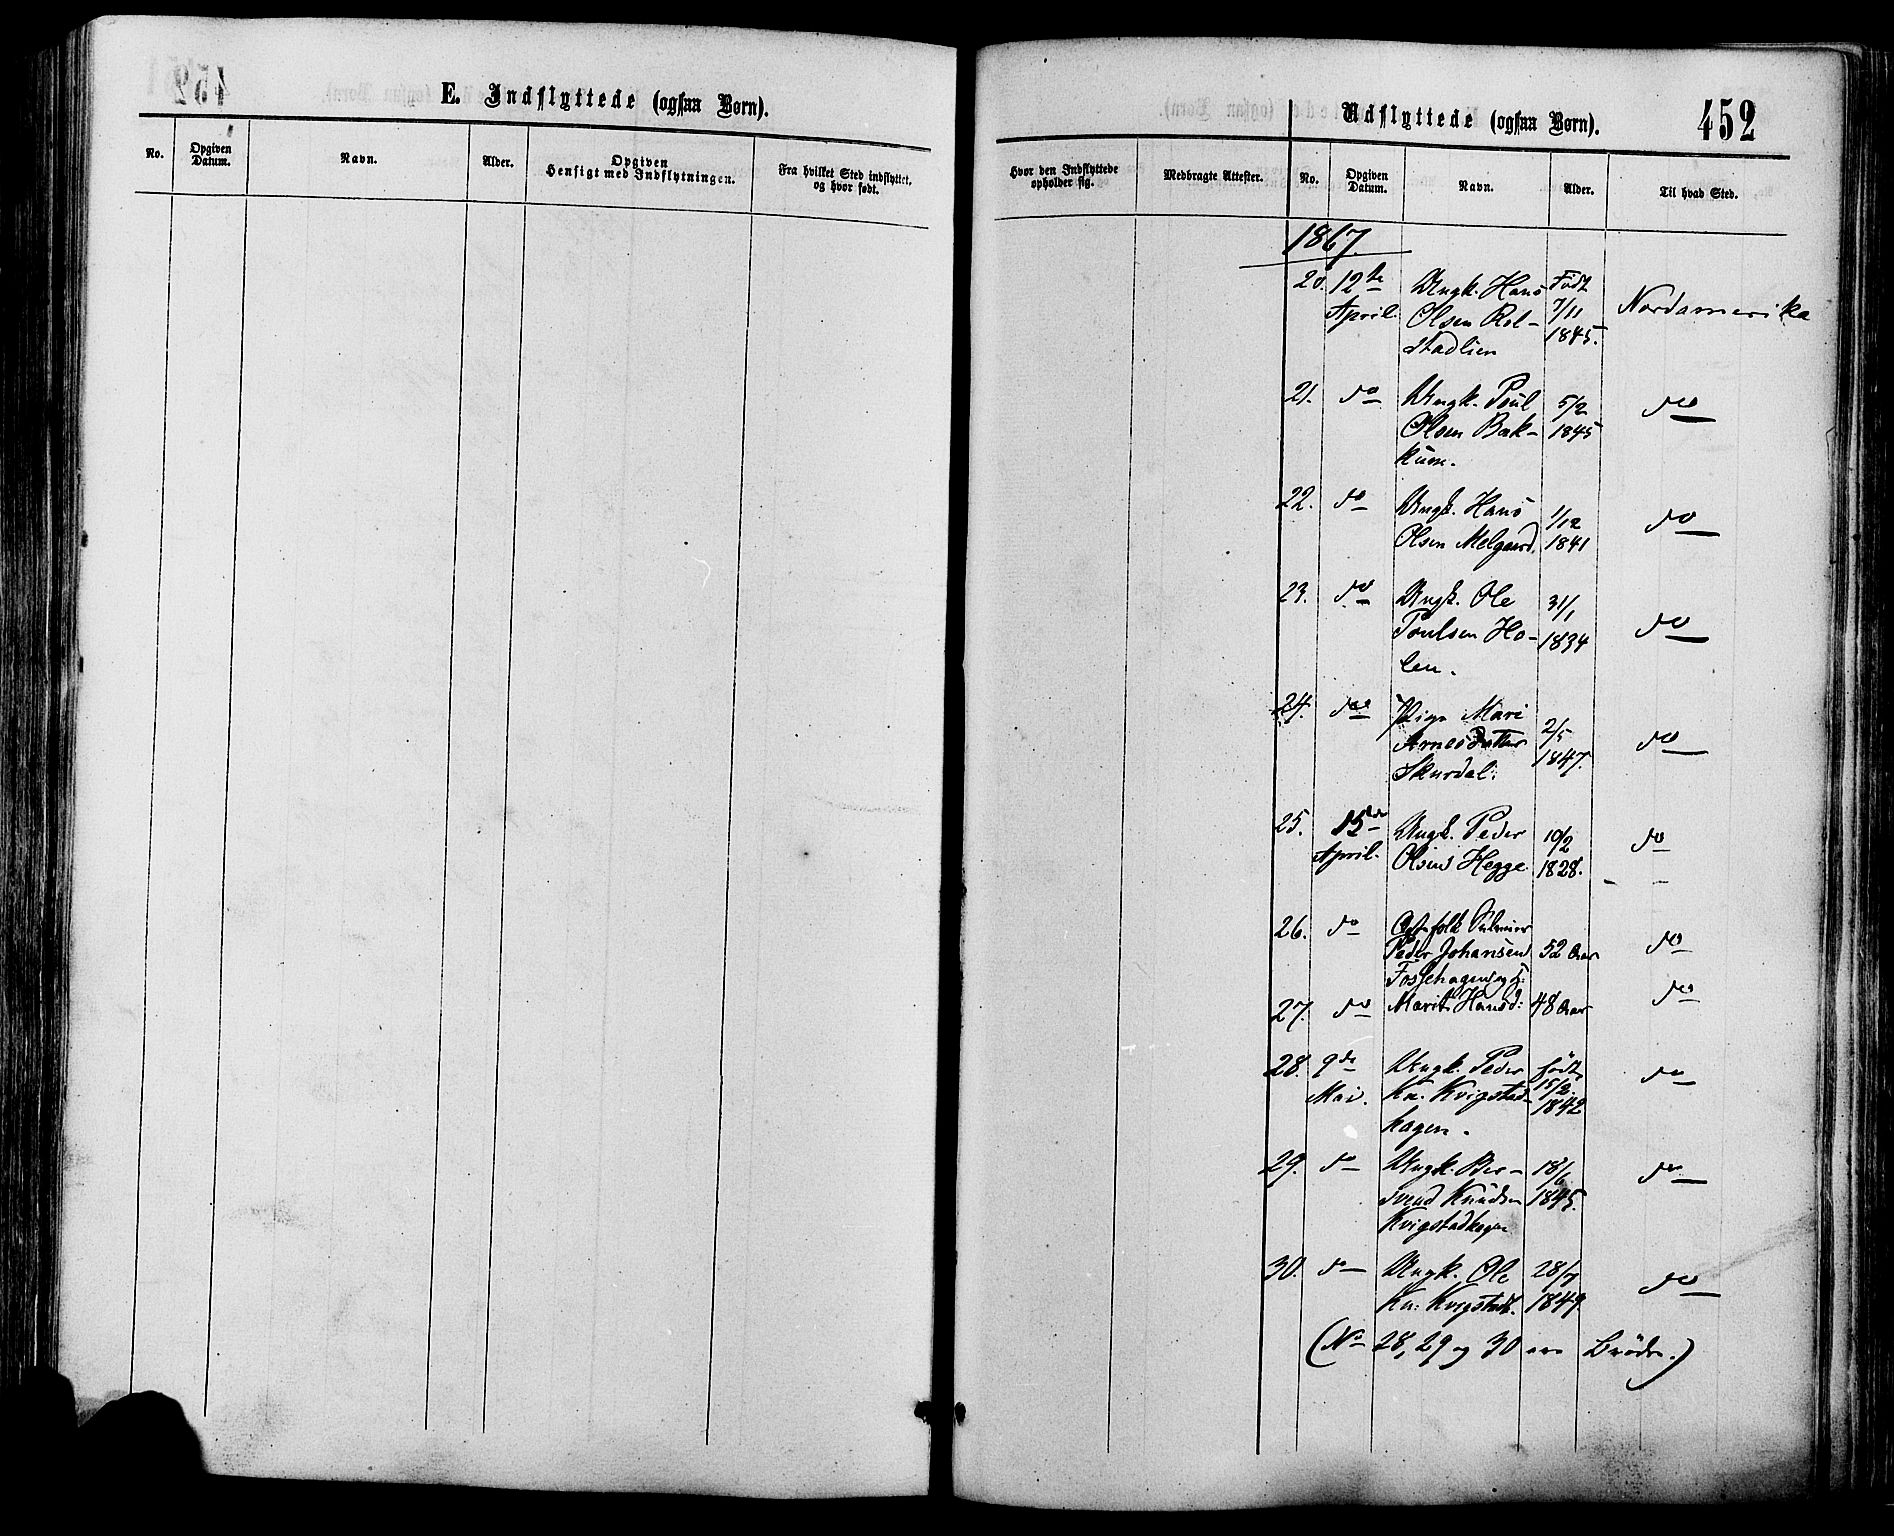 E. Indflyttede (ogsaa Børn).
No.
Opgiven
Datum.
Navn.
Alder.
Opgiven
Hensigt med Indflytningen.
Fra hvilket Sted indflyttet,
og hvor født.
Udflyttede (ogsaa Børn).
452
Hvor den Indflyttede
opholder sig.
Medbragte Attester.
No.
Opgiven
Datum.
Navn.
Alder.
Til hvad Sted.
1867.
20. 12te Ungk. Hans Født Nordamerika
April Olsen Rol- 7/11
stadlien 1845.
21. do Ungk. Poul 5/2 do
Olsen Bak- 1845
kum.
22. do Ungk. Hans 1/12 do
Olsen Melgaard. 1841
23. do Ungk. Ole 31/1 do
Poulsen Ho- 1834
len.
24. do Pige Mari 2/5 do
Arnesdatter 1847.
Skurdal.
25. 15de Ungk. Peder 10/2 do
April. Olsen Hegge 1828.
26. do folk
Peder Johansen 52 Aar do
Fossehagen og
27. do Marit Hansd: 48 Aar do
28. 9de Ungk. Peder født do
Mai. Kn. Kvigstad- 15/2
hagen. 1842
29. do Ungk. Be- 18/6 do
svend Knudsen 1845.
Kvigstadhagen
30. do Ungk. Ole 28/7 do
Kn: Kvigstadh. 1849
(No 28, 29 og 30 ere Brødre.)